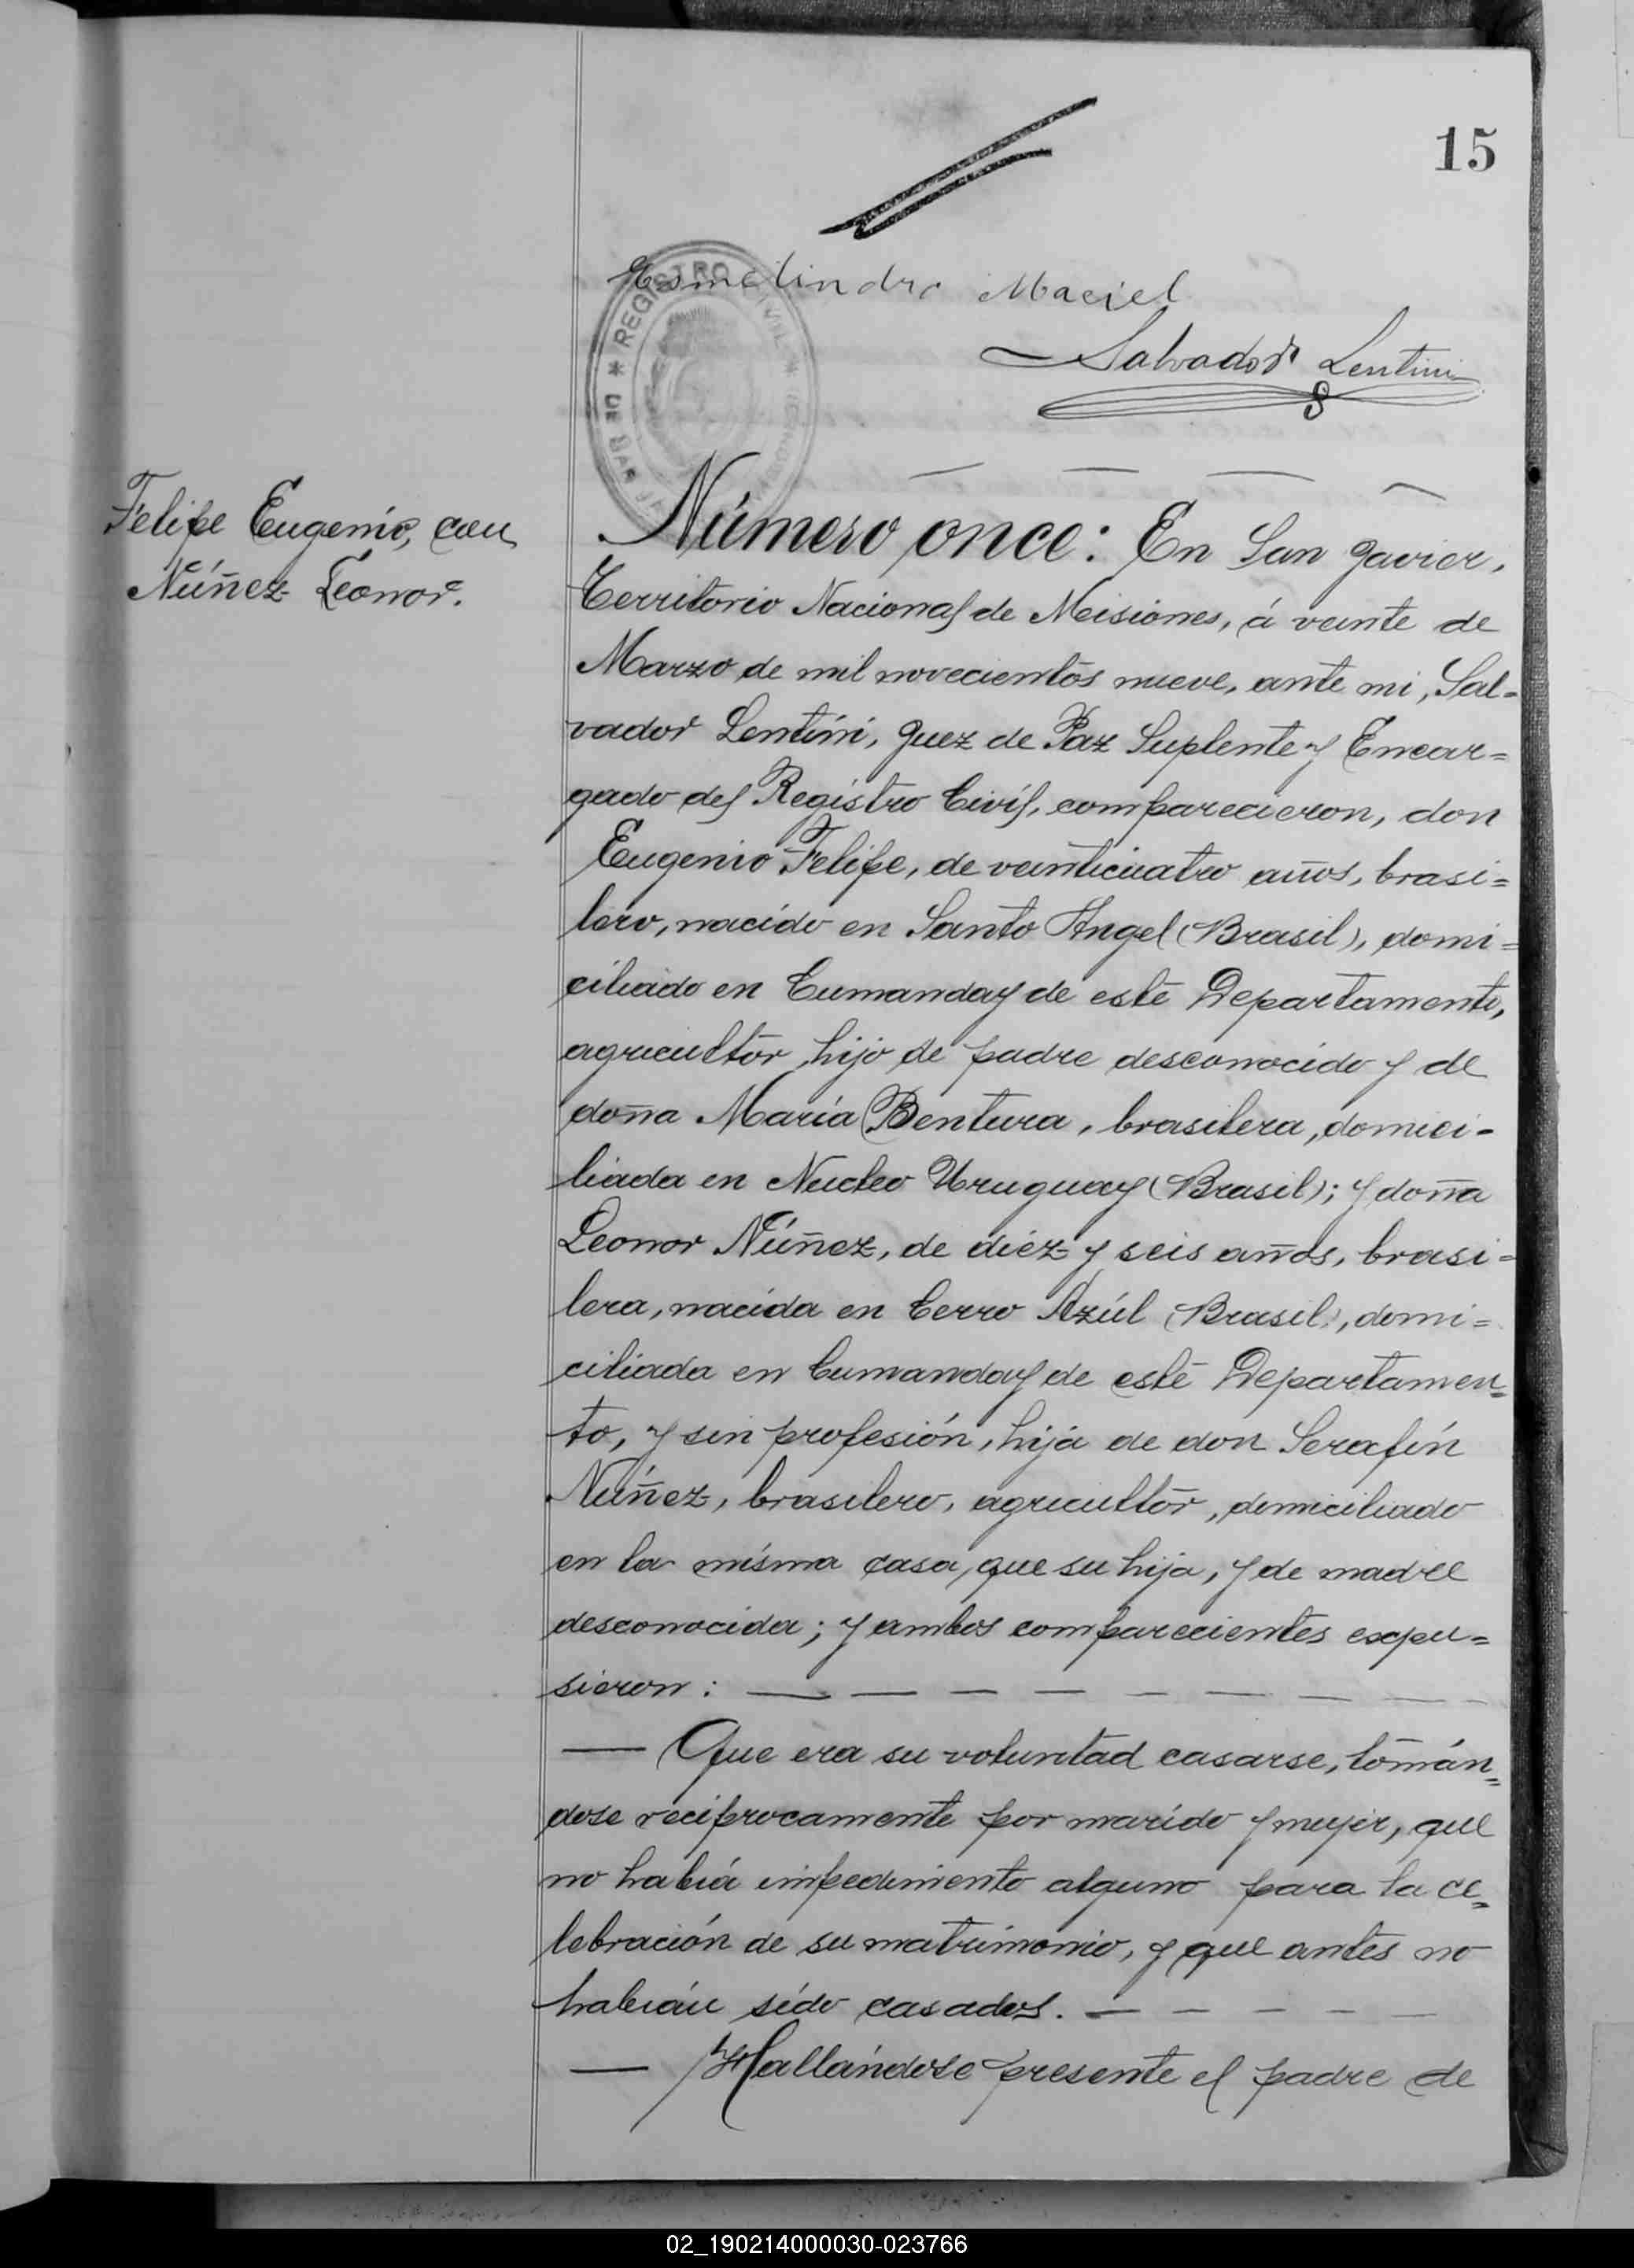 15
Maciel
Salvador Lentini
REGISTRO CIVIL
Felipe Eugenio, con
Núñez Leonor.
Número once: En San Javier,
Territorio Nacional de Misiones, á veinte de
Marzo de mil novecientos nueve, ante mi, Sal=
vador Lentini, Juez de Paz Suplente y Encar=
gado del Registro Civil, comparecieron, don
Eugenio Felipe, de veinticuatro años, brasi=
lero, nacido en Santo Angel (Brasil), domi=
ciliado en Cumanday de este Departamento,
agricultor, hijo de padre desconocido y de
doña María Bentura, brasilera, domici-
liada en Nucleo Uruguay (Brasil); y doña
Leonor Núñez, de diéz y seis años, brasi=
lera, nacida en Cerro Azúl (Brasil), domi=
ciliada en Cumanday de este Departamen=
to, y sin profesión, hija de don Serafín
Núñez, brasilero, agricultor, domiciliado
en la misma casa, que su hija, y de madre
desconocida; y ambos comparecientes expu=
sieron:
— Que era su voluntad casarse, tomán=
dose reciprocamente por marido y mujer, que
no había impedimento alguno para la ce=
lebración de su matrimonio, y que antes no
habían sido casados.
— Hallándose presente el padre de
02_190214000030-023766